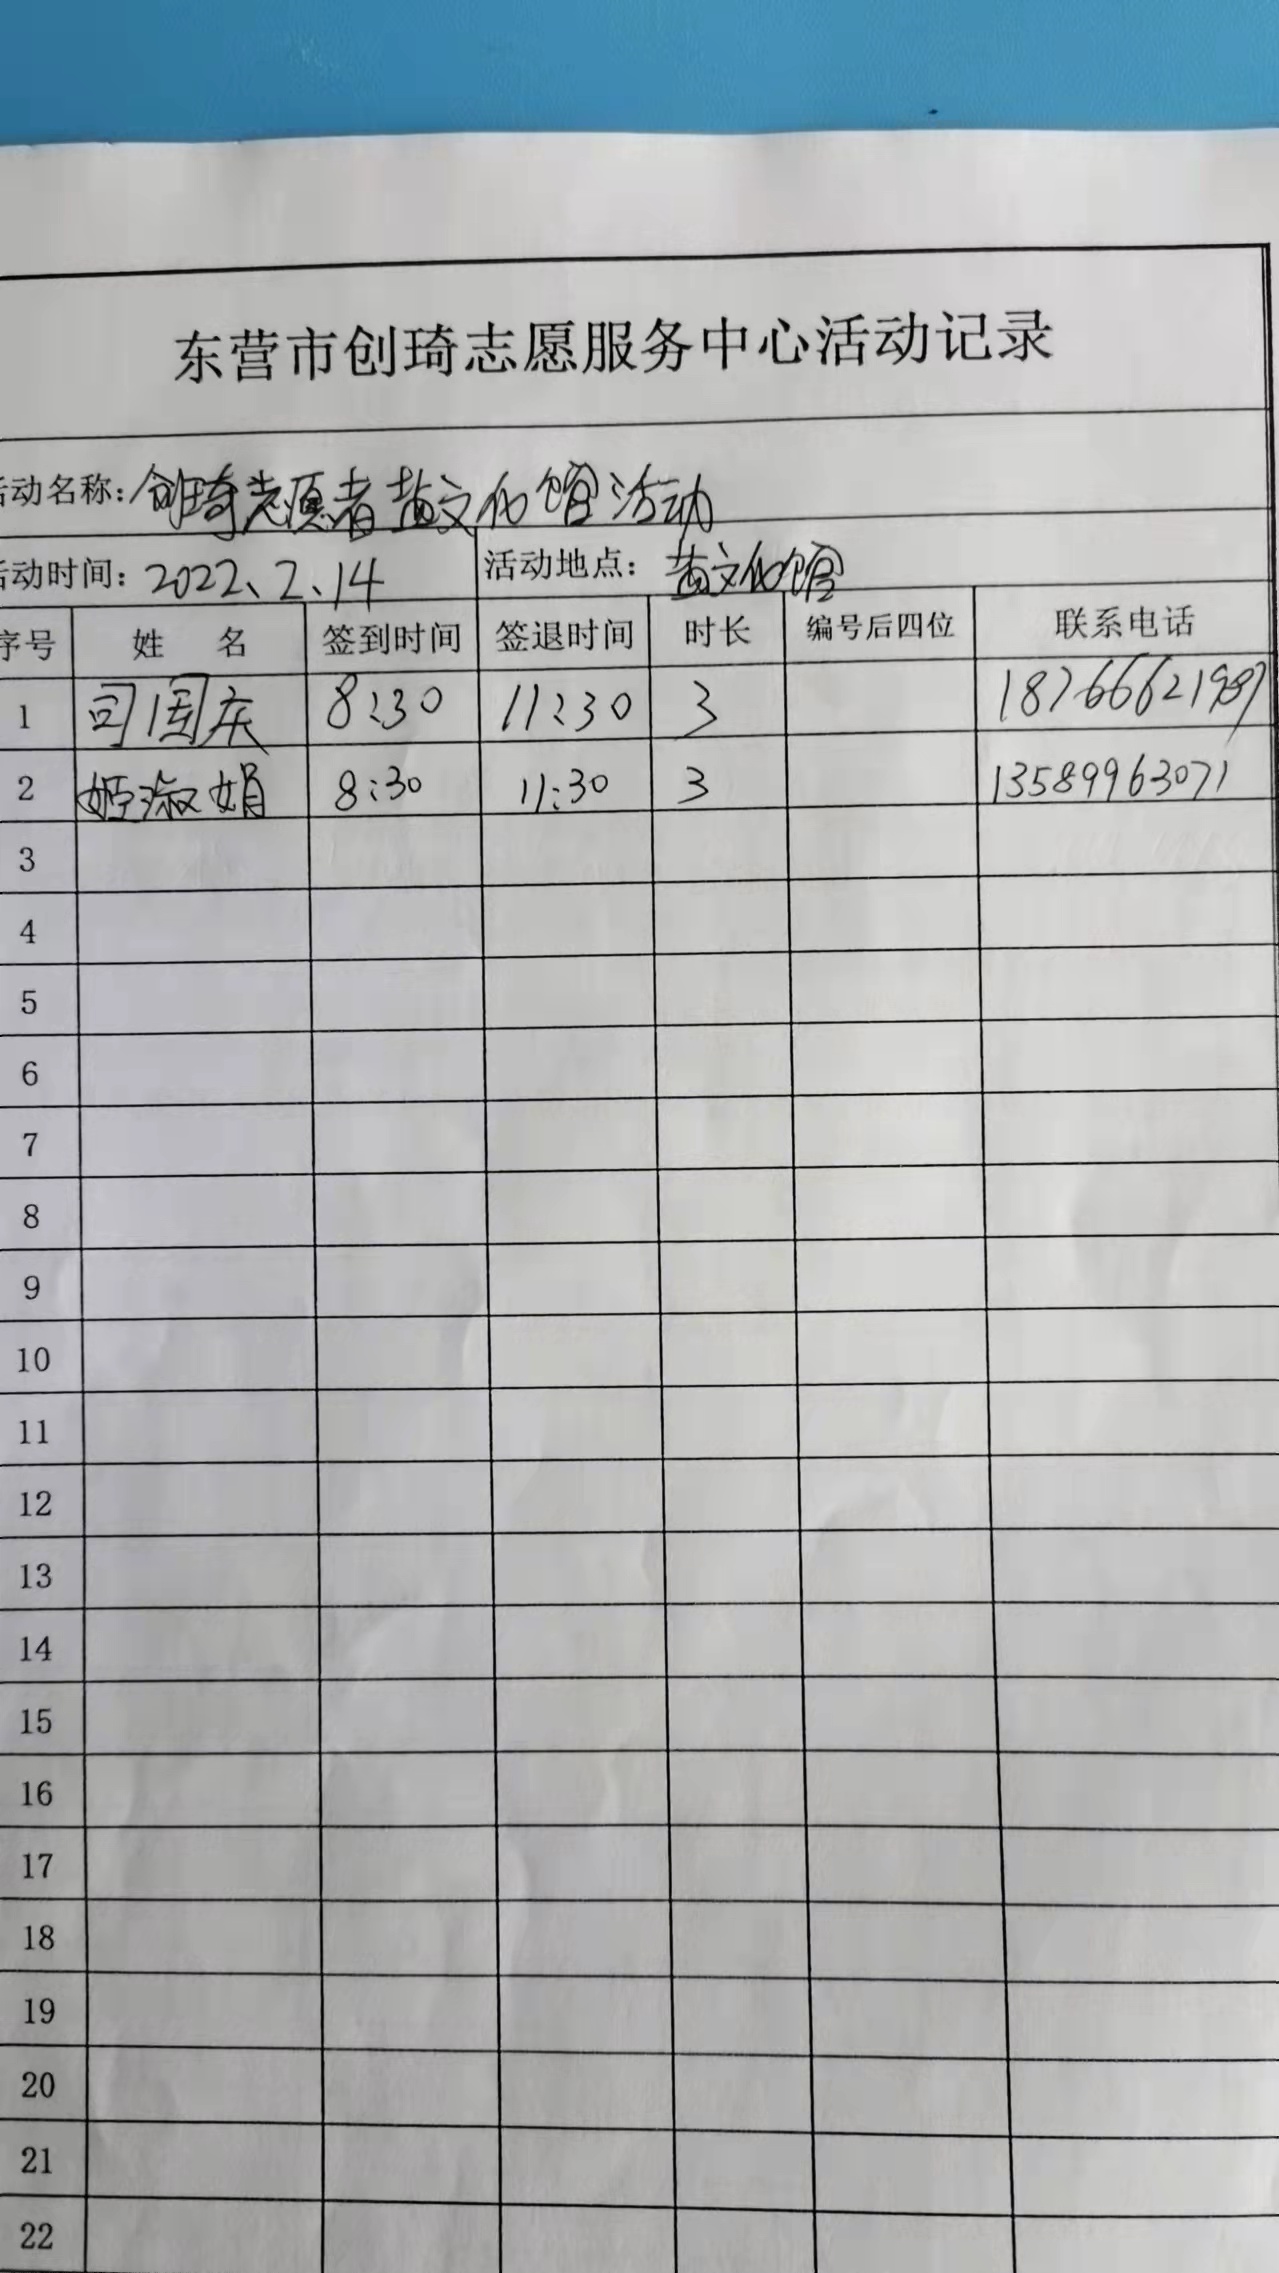 东营市创琦志愿服务中心活动记录
活动名称：创琦志愿者盐文化馆活动
活动时间：2022、2、14 活动地点：盐文化馆
序号 姓 名 签到时间 签退时间 时长 编号后四位 联系电话
1 司国庆 8:30 11:30 3 18766621987
2 姬淑娟 8:30 11:30 3 13589963071
3
4
5
6
7
8
9
10
11
12
13
14
15
16
17
18
19
20
21
22